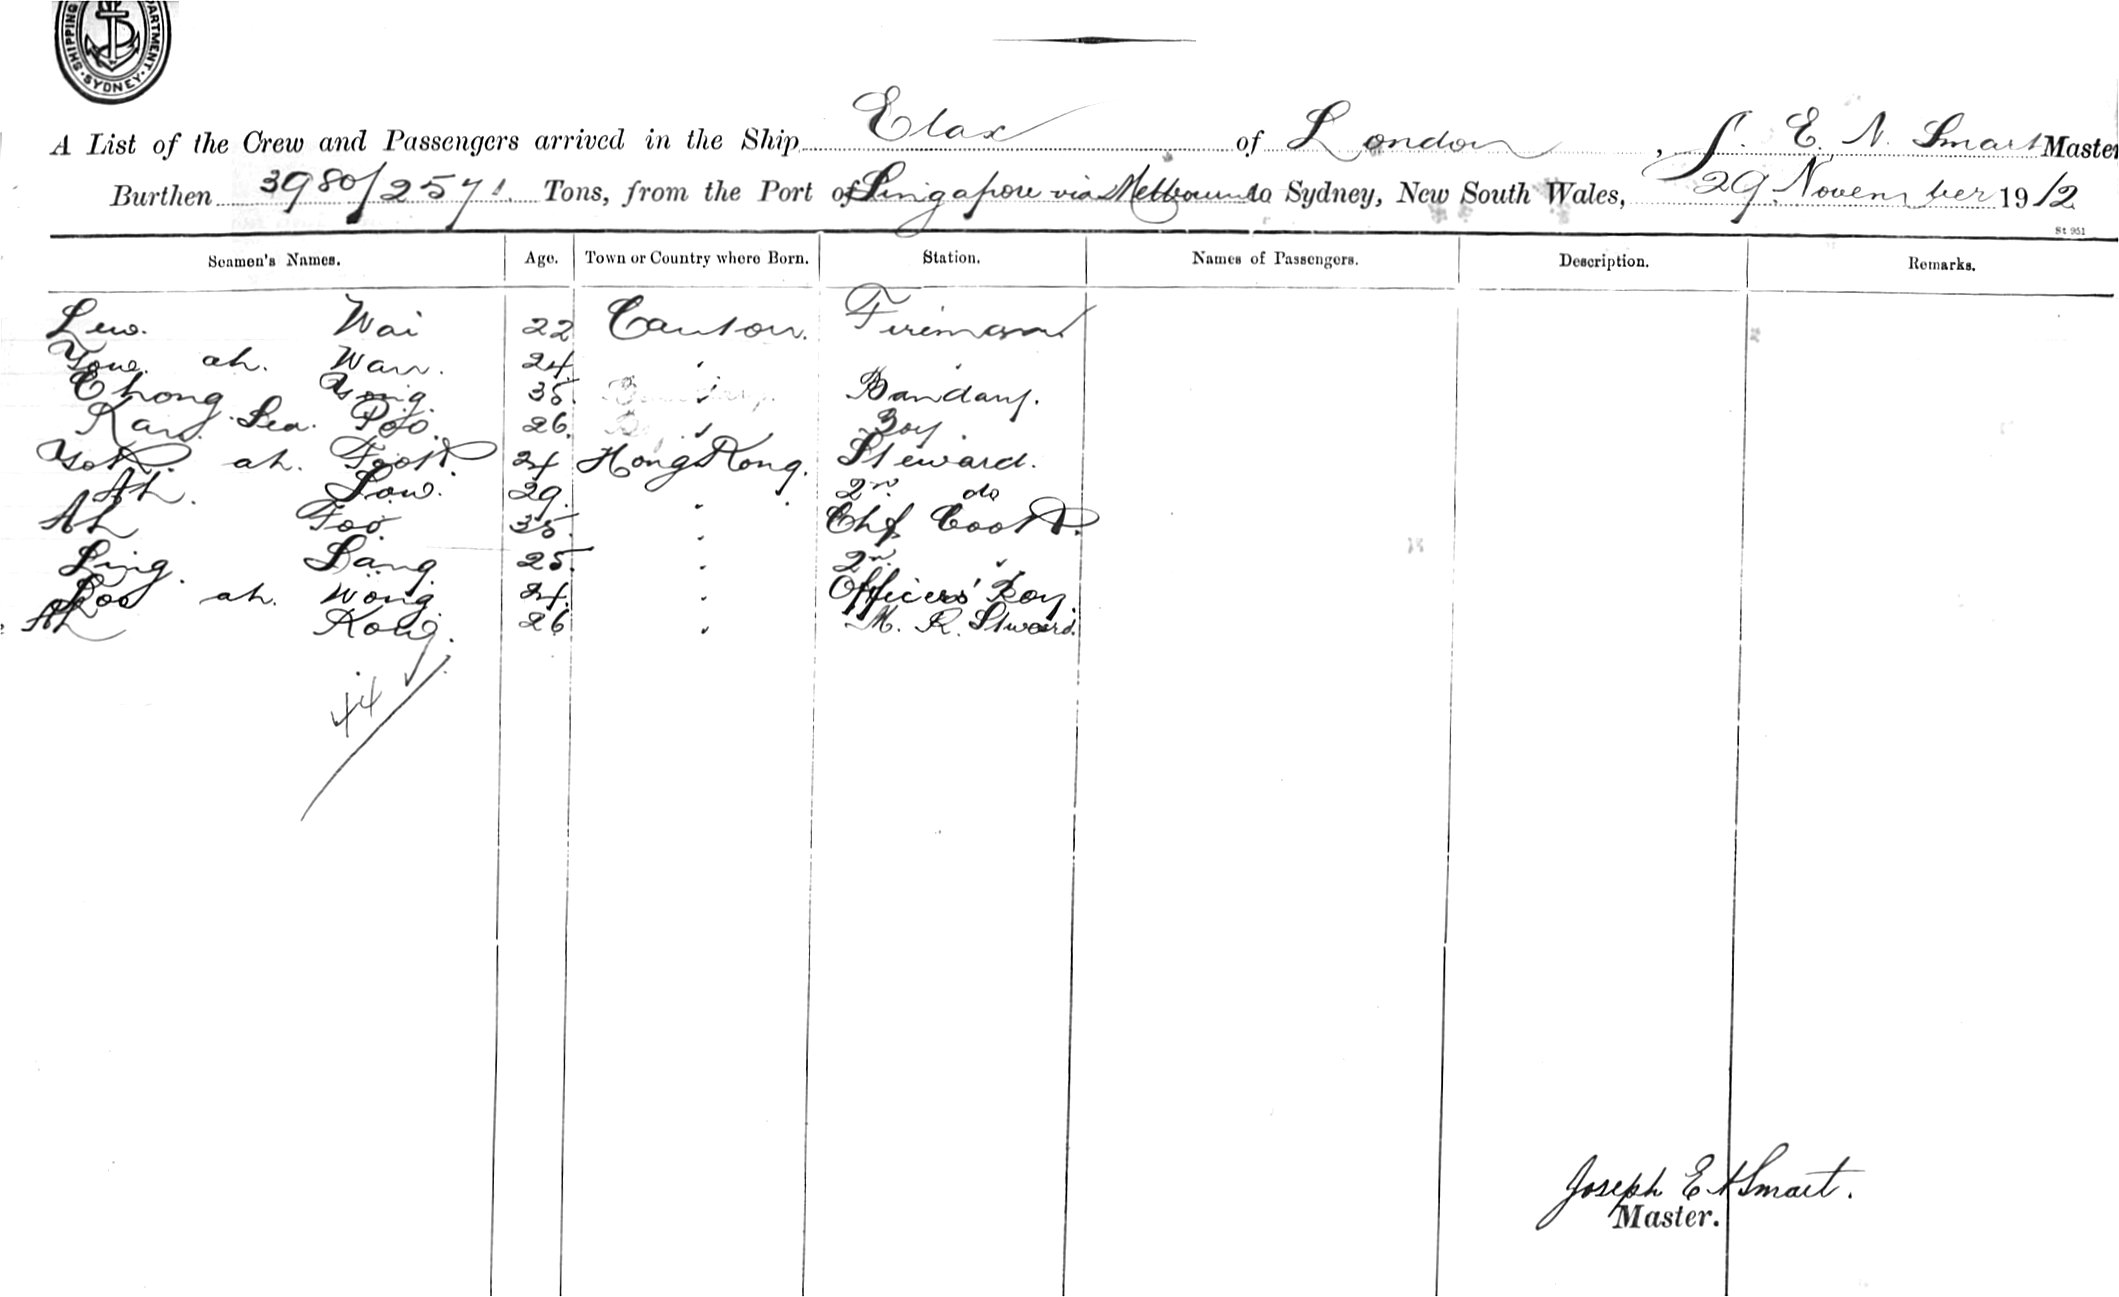 SHIPPING DEPARTMENT. SYDNEY.
A List of the Crew and Passengers arrived in the Ship Elax of London, J. E. N. Smart Master
Burthen 3980/2571. Tons, from the Port of Singapore via Melbourne to Sydney, New South Wales, 29 November 1912
St 951
Seamen's Names. Age. Town or Country where Born. Station. Names of Passengers. Description. Remarks.
Lew. Wai 22 Canton. Fireman
Yowe. ah. Wan. 24. " "
Chong Yong. 35. " Bandary.
Kan. Sea. Poo. 26. " Boy.
Yok. ah. Fook. 24 Hong Kong. Steward.
Ah. Low. 29. " 2n. do
Ah Foo 35. " Chf Cook.
Ling. Sang. 25. " 2n. "
Loo ah. Wong 24. " Officers' Boy.
Ah Kong. 26 " M. R. Steward.
44
Joseph E N Smart.
Master.